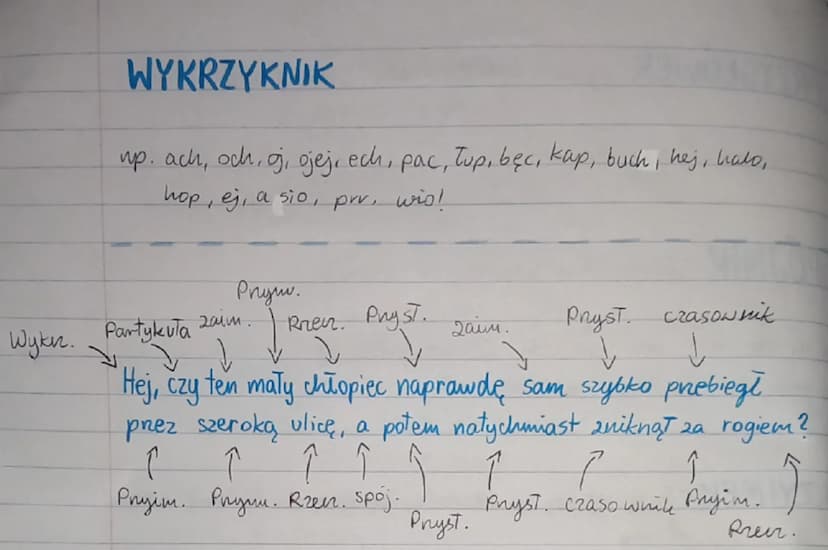 WYKRZYKNIK
np. ach, och, oj, ojej, ech, pac, łup, bęc, kap, buch, hej, halo,
hop, ej, a sio, prr, wio!
Przym.
Wykrz. Partykuła zaim. Rzecz. Przysł. zaim. Przysł. czasownik
Hej, czy ten mały chłopiec naprawdę sam szybko przebiegł
przez szeroką ulicę, a potem natychmiast zniknął za rogiem?
Przyim. Przym. Rzecz. spój. Przysł. Przysł. czasownik Przyim. Rzecz.